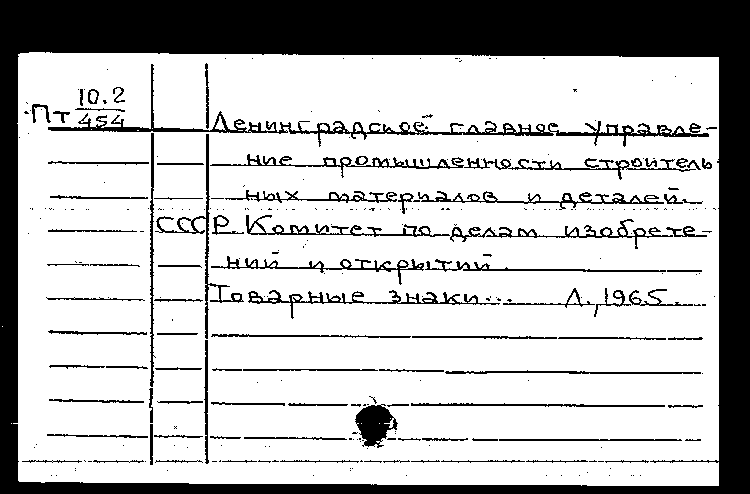 Пт 10.2/454
Ленинградское главное управле-
ние промышленности строитель-
ных материалов и деталей.
СССР. Комитет по делам изобрете-
ний и открытий.
Товарные знаки... Л., 1965.